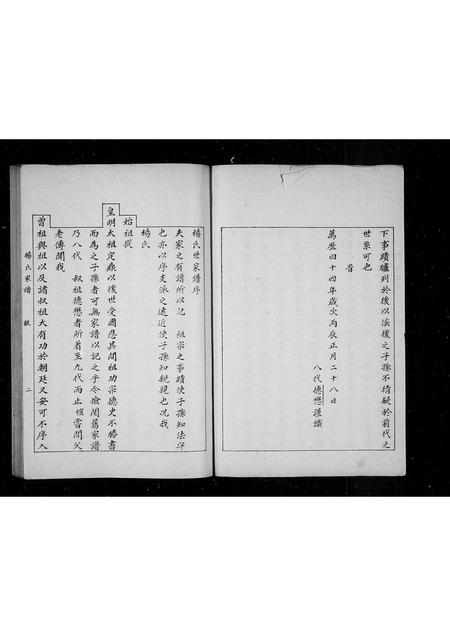 下事蹟臚列於後以俟後之子孫不精駁於前代之
世系可也
旹
萬歷四十四年歲次丙辰正月二十八日
八代德懋謹識
楊氏世家譜序
夫家之有譜所以記 祖宗之事蹟使子孫知法守
也亦以序支派之遠近使子孫知親親也况我
楊氏
始祖從
皇明太祖定鼎以後世受國恩其間祖功宗德史不勝書
而為之子孫者可無家譜以記之乎今檢閱舊家譜
乃八代 叔祖德懋者所著至九代而止恆嘗聞父
老傳聞我
曾祖與祖以及諸叔祖大有功於朝廷又安可不序入
楊氏家譜 敘 二